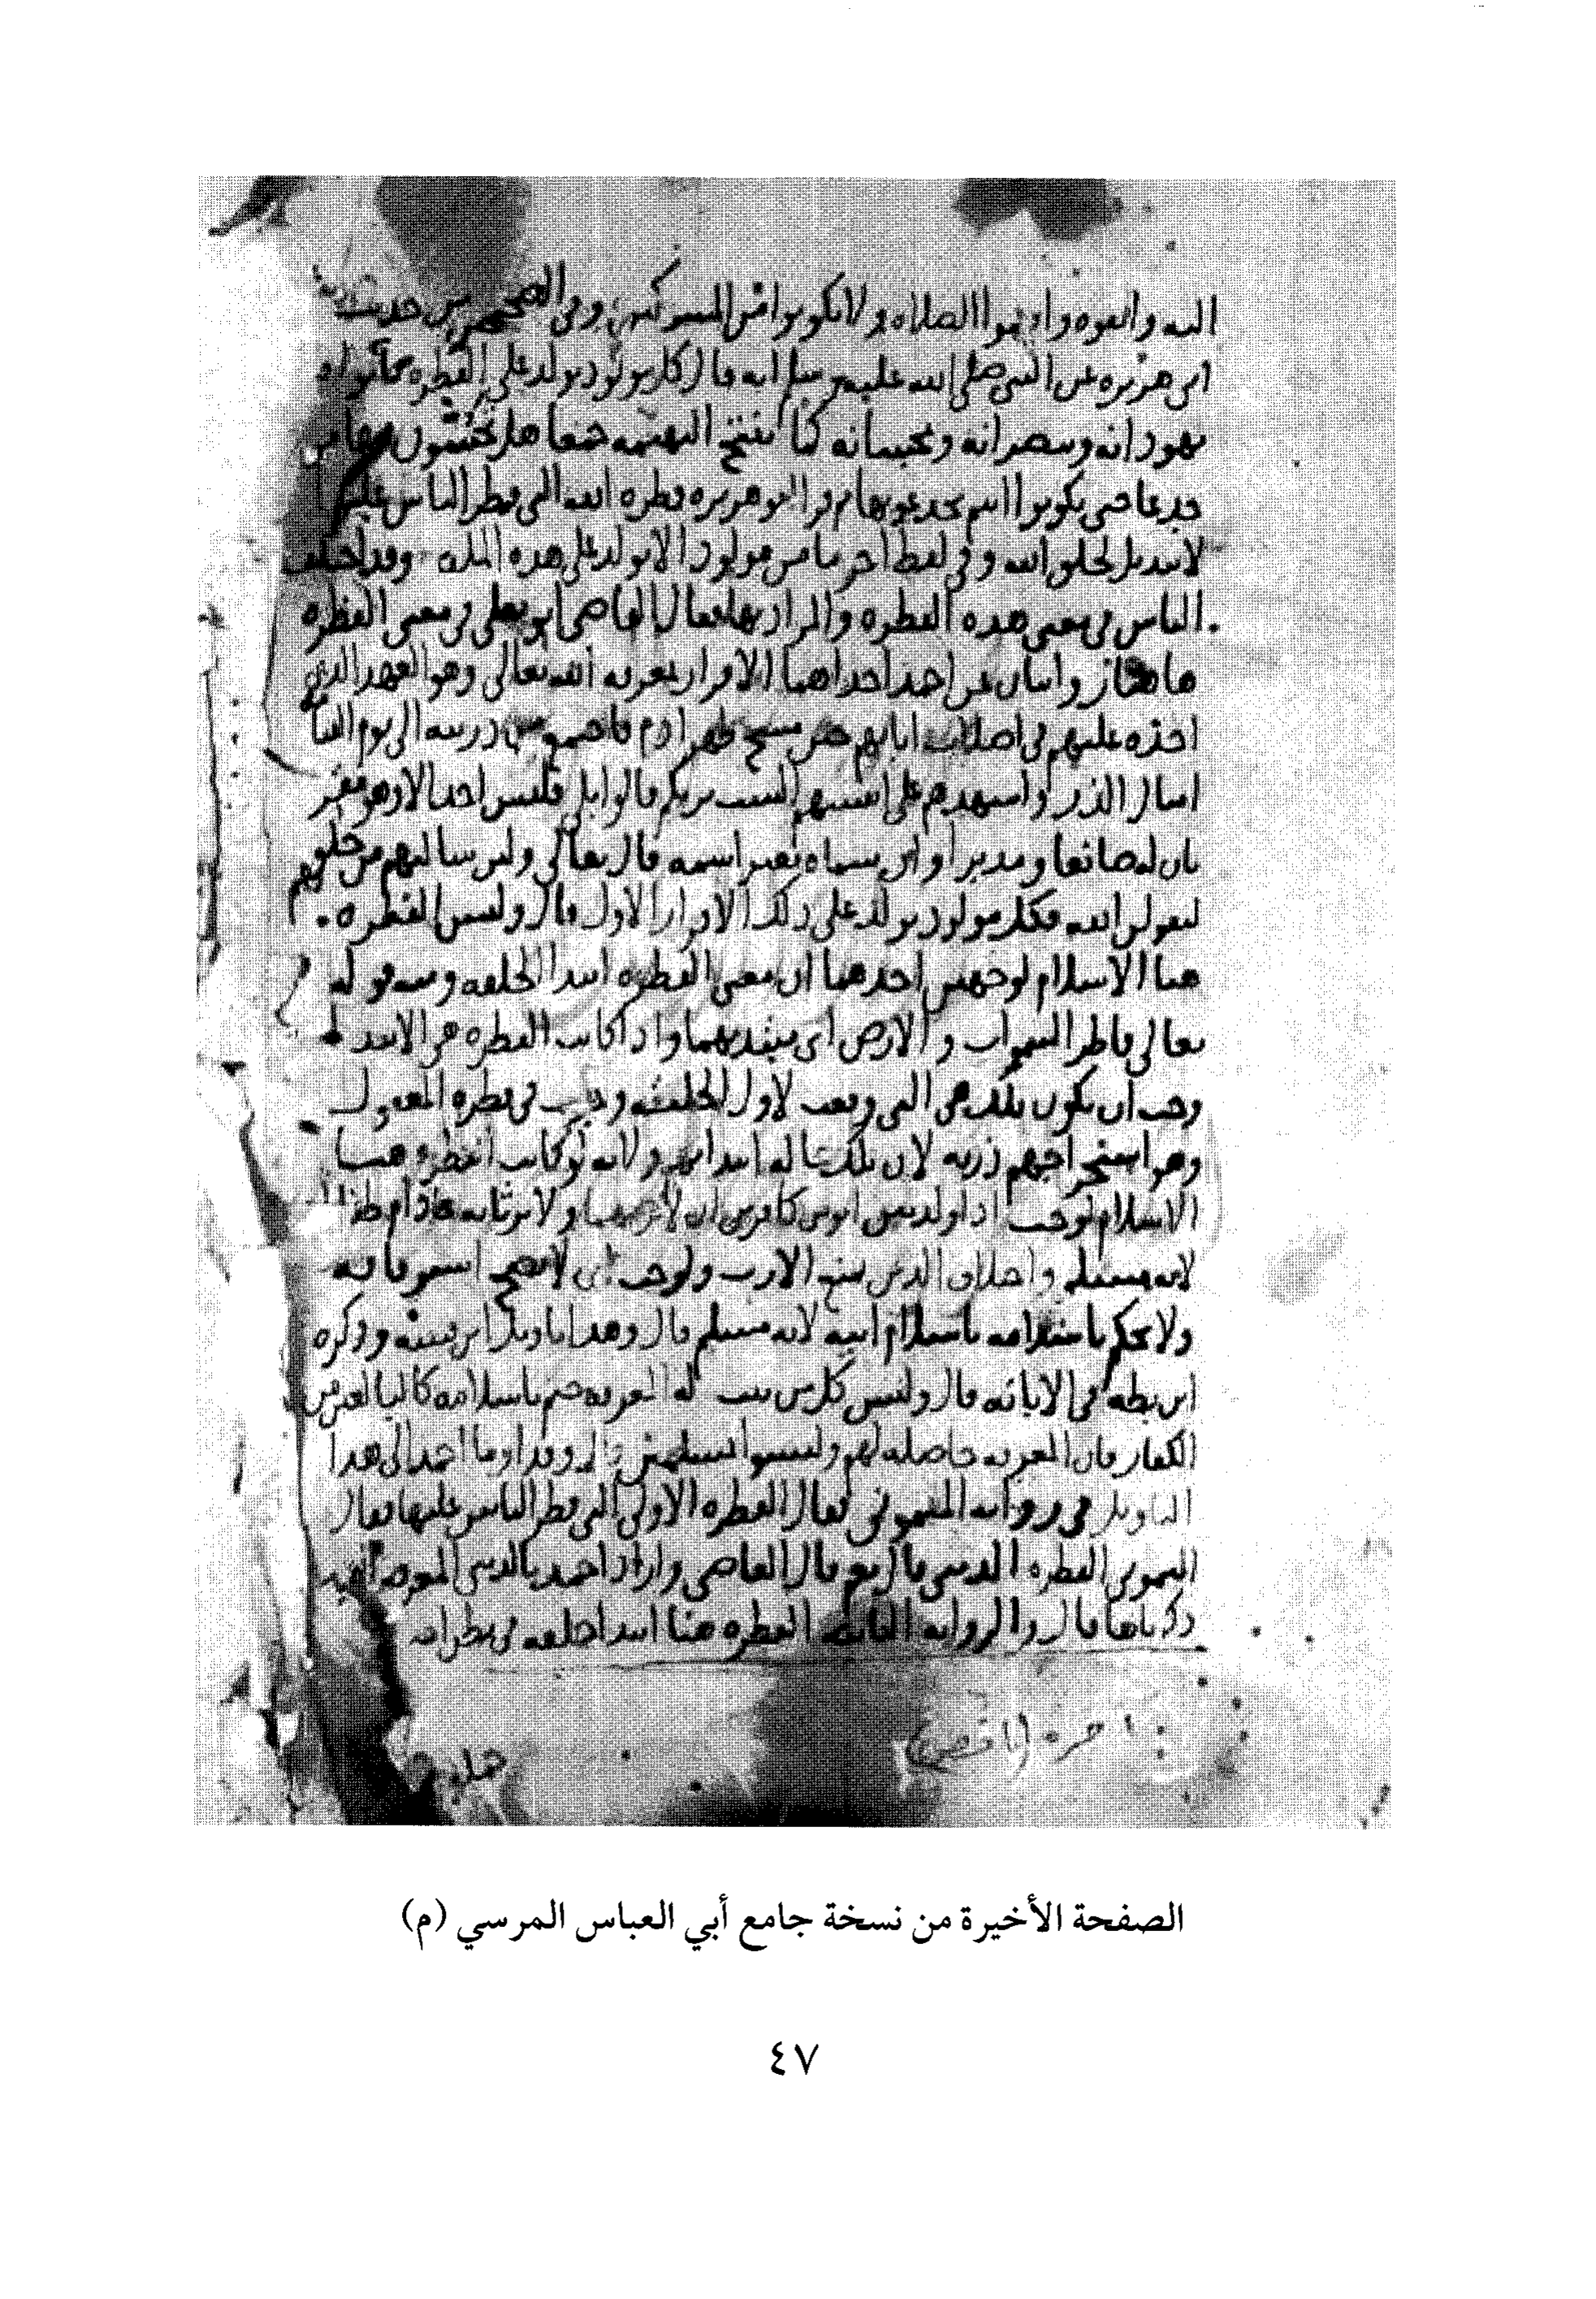 اليه واتقوه واقيموا الصلاه ولا تكونوا من المشركين وفي الصحيحين من حديث
ابي هريره عن النبي صلى الله عليه وسلم انه قال كل مولود يولد على الفطره فابواه
يهودانه وينصرانه ويمجسانه كما تنتج البهيمه جمعا هل تحسون فيها من
جدعا حتى تكونوا انتم تجدعونها ثم قرا ابو هريره فطره الله التي فطر الناس عليها
لا تبديل لخلق الله وفي لفظ اخر ما من مولود الا يولد على هذه المله وقد اختلف
الناس في معنى هذه الفطره والمراد بها فقال القاضي ابو يعلى في معنى الفطره
هاهنا روايتان عن احمد احداهما الاقرار بمعرفه الله تعالى وهو العهد الذي
اخذه عليهم في اصلاب ابايهم حين مسح ظهر ادم فاخرج من ذريته الى يوم القيامة
امثال الذر واشهدهم على انفسهم الست بربكم قالوا بلى فليس احد الا وهو مقر
بان له صانعا ومدبرا وان سماه بغير اسمه قال تعالى ولين سالتهم من خلقهم
ليقولن الله فكل مولود يولد على ذلك الاقرار الاول قال وليس الفطره
هنا الاسلام لوجهين احدهما ان معنى الفطره ابتدا الخلقه ومنه قوله
تعالى فاطر السموات والارض اي مبتديهما واذا كانت الفطره هي الابتدا
وجب ان تكون تلك هي التي وقعت لاول الخليقه وجرت في فطره المعقول
وهو استخراجهم ذريه لان تلك حاله ابتدايهم ولانه لو كانت الفطره هنا
الاسلام لوجب اذا ولد بين ابوين كافرين ان لا يرثهما ولا يرثانه ما دام طفلا
لانه مسلم واختلاف الدين يمنع الارث ولوجب ان لا يصح استرقاقه
ولا يحكم باسلامه باسلام ابيه لانه مسلم قال وهذا تاويل ابن قتيبه وذكره
ابن بطه في الابانه قال وليس كل من تثبت له المعرفه حكم باسلامه كالبالغين من
الكفار فان المعرفه حاصله لهم وليسوا بمسلمين قال وقد اوما احمد الى هذا
التاويل في روايه الميموني فقال الفطره الاولى التي فطر الناس عليها فقال
الميموني الفطره الدين قال نعم قال القاضي واراد احمد بالدين المعرفه التي
ذكرناها قال والروايه الثانيه الفطره هنا ابتدا خلقه في بطن امه
الصفحة الأخيرة من نسخة جامع أبي العباس المرسي (م)
٤٧